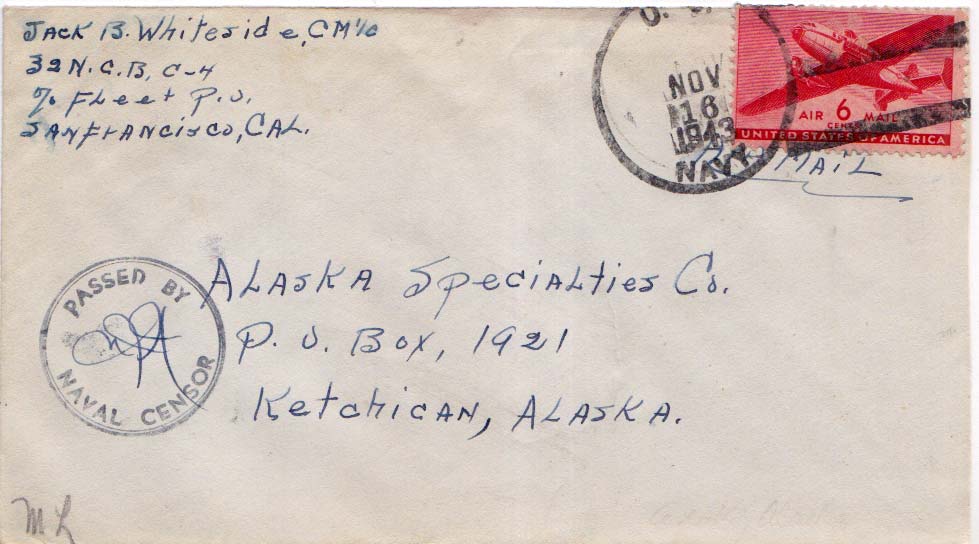 Jack B. Whiteside, CM1/c
32 N.C.B, C-4
℅ Fleet P.O.
San Francisco, Cal.
U. S.
NOV
16
1943
NAVY
AIR 6 MAIL
CENTS
UNITED STATES OF AMERICA
Air Mail
PASSED BY
NAVAL CENSOR
Alaska Specialties Co.
P. O. Box, 1921
Ketchican, Alaska.
ML